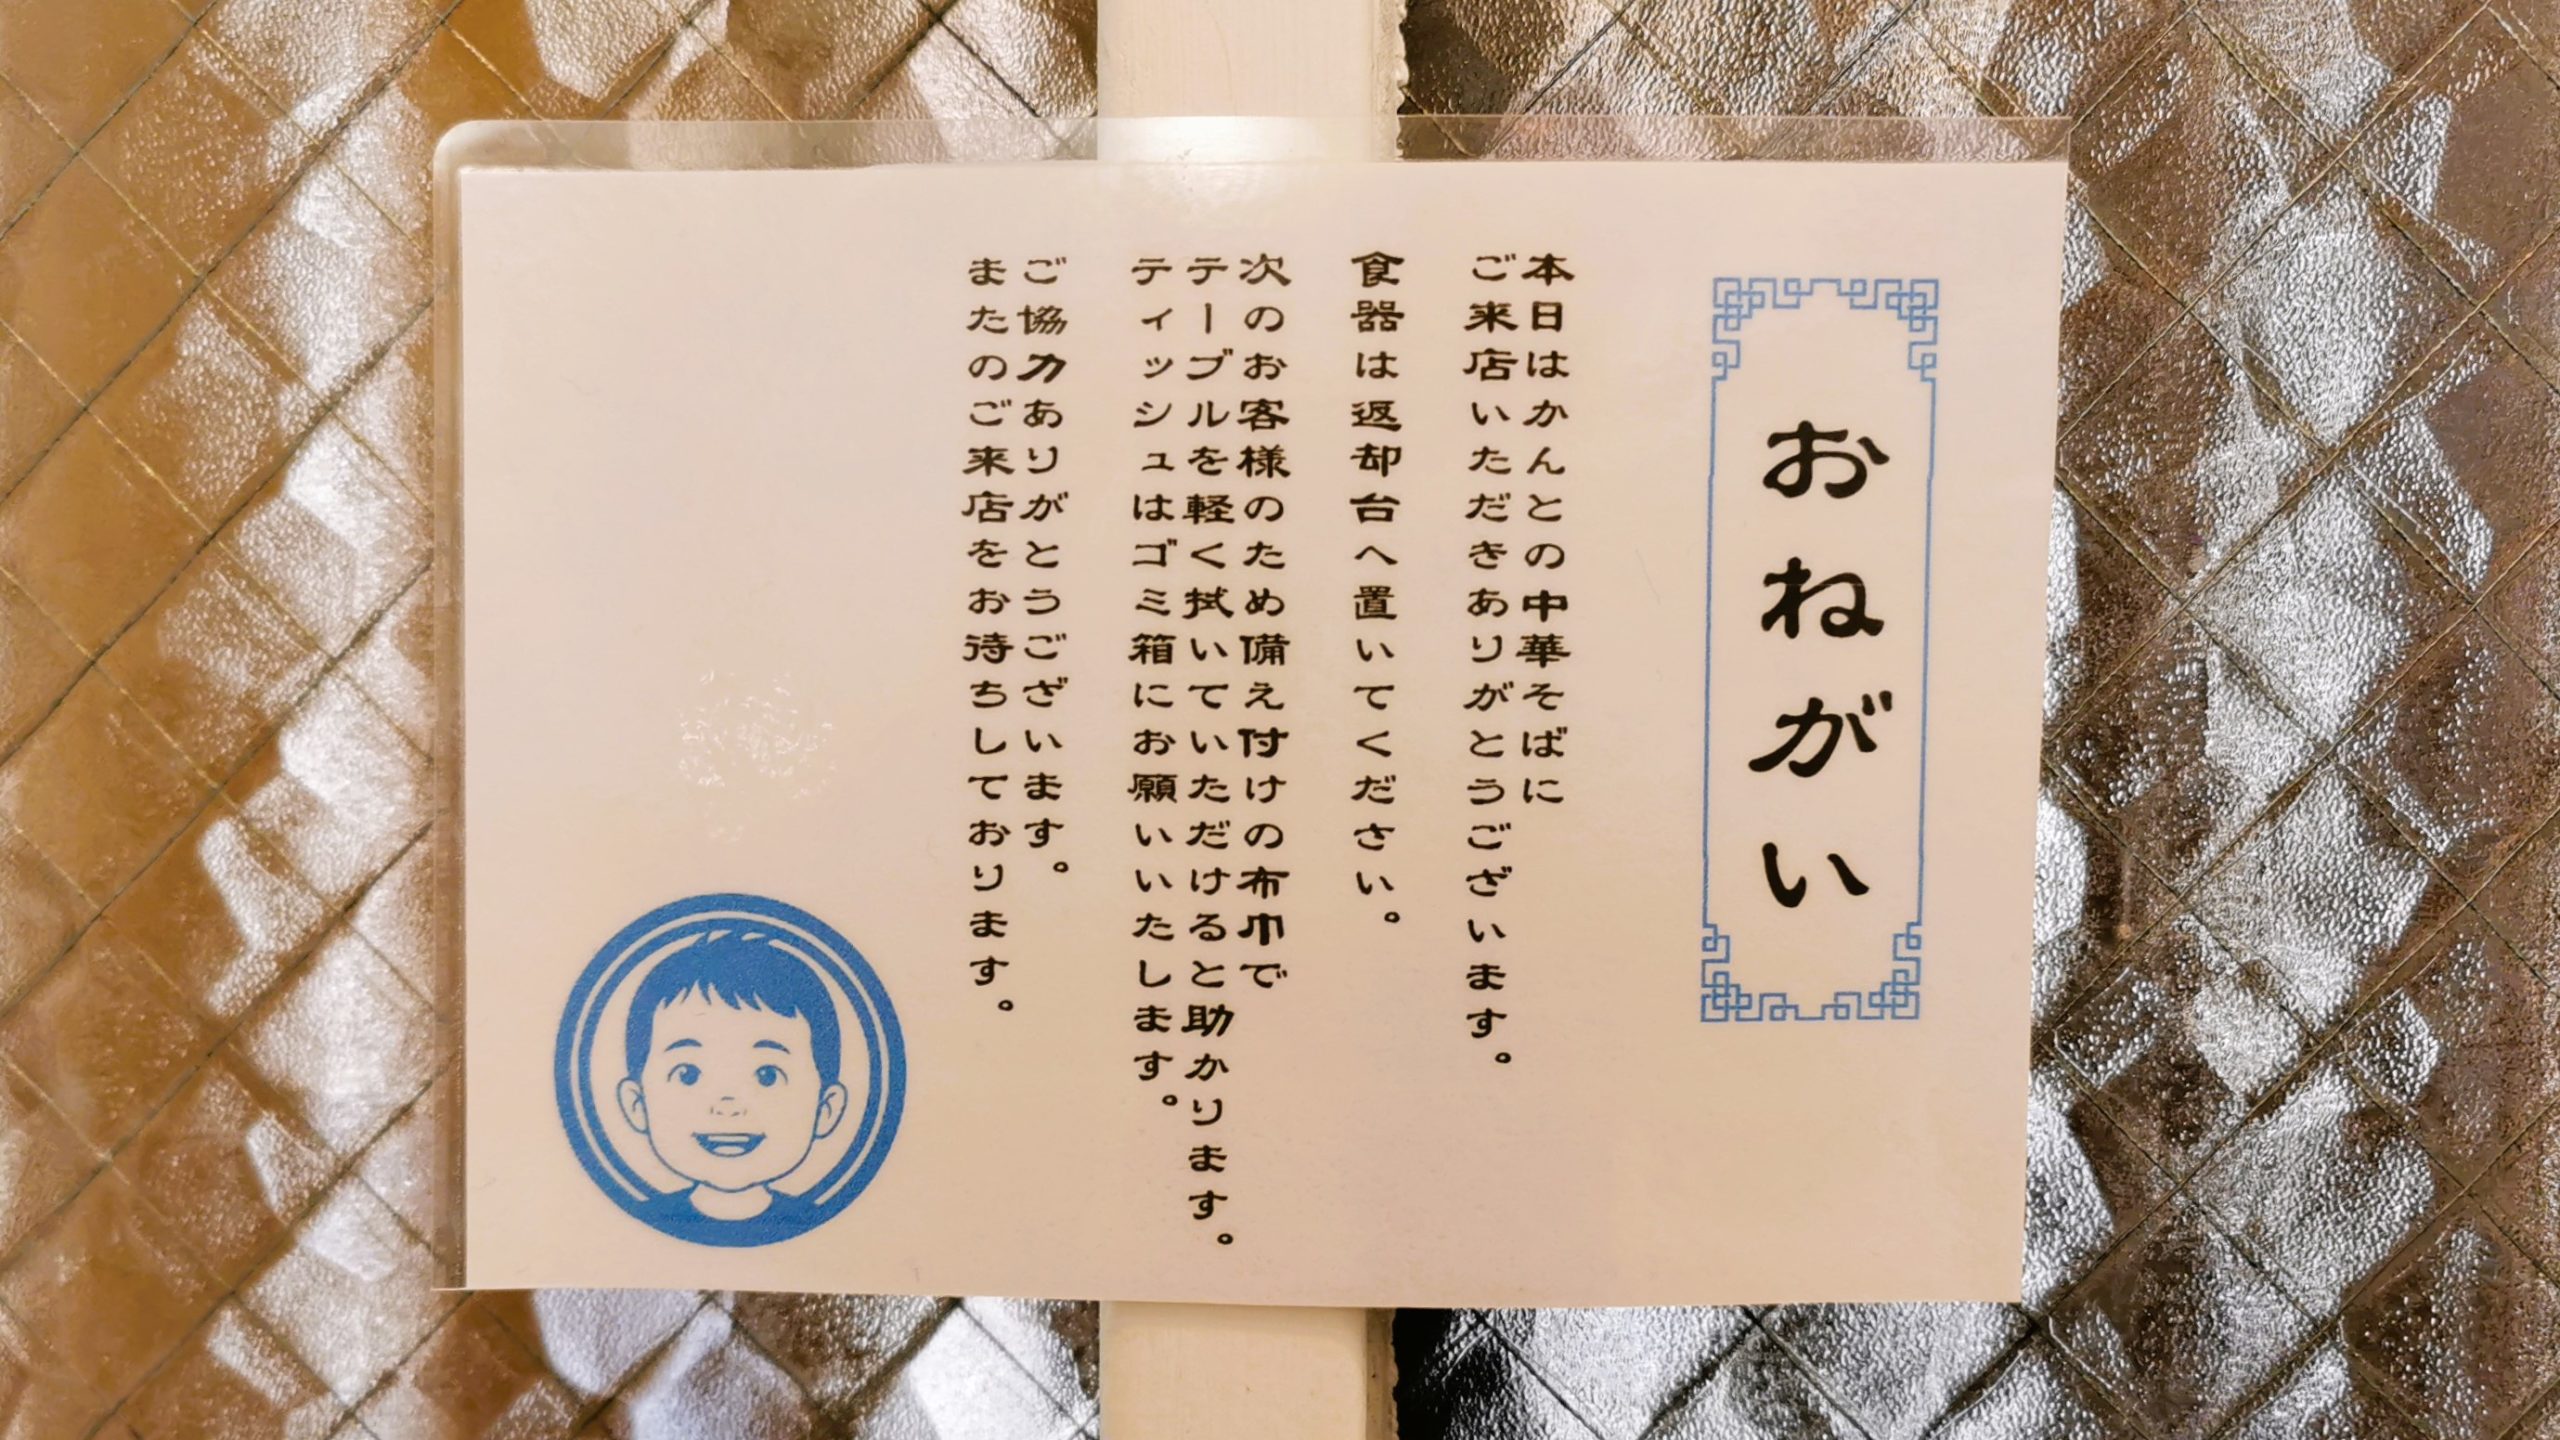 おねがい
本日はかんとの中華そばに
ご来店いただきありがとうございます。
食器は返却台へ置いてください。
次のお客様のため備え付けの布巾で
テーブルを軽く拭いていただけると助かります。
ティッシュはゴミ箱にお願いいたします。
ご協力ありがとうございます。
またのご来店をお待ちしております。